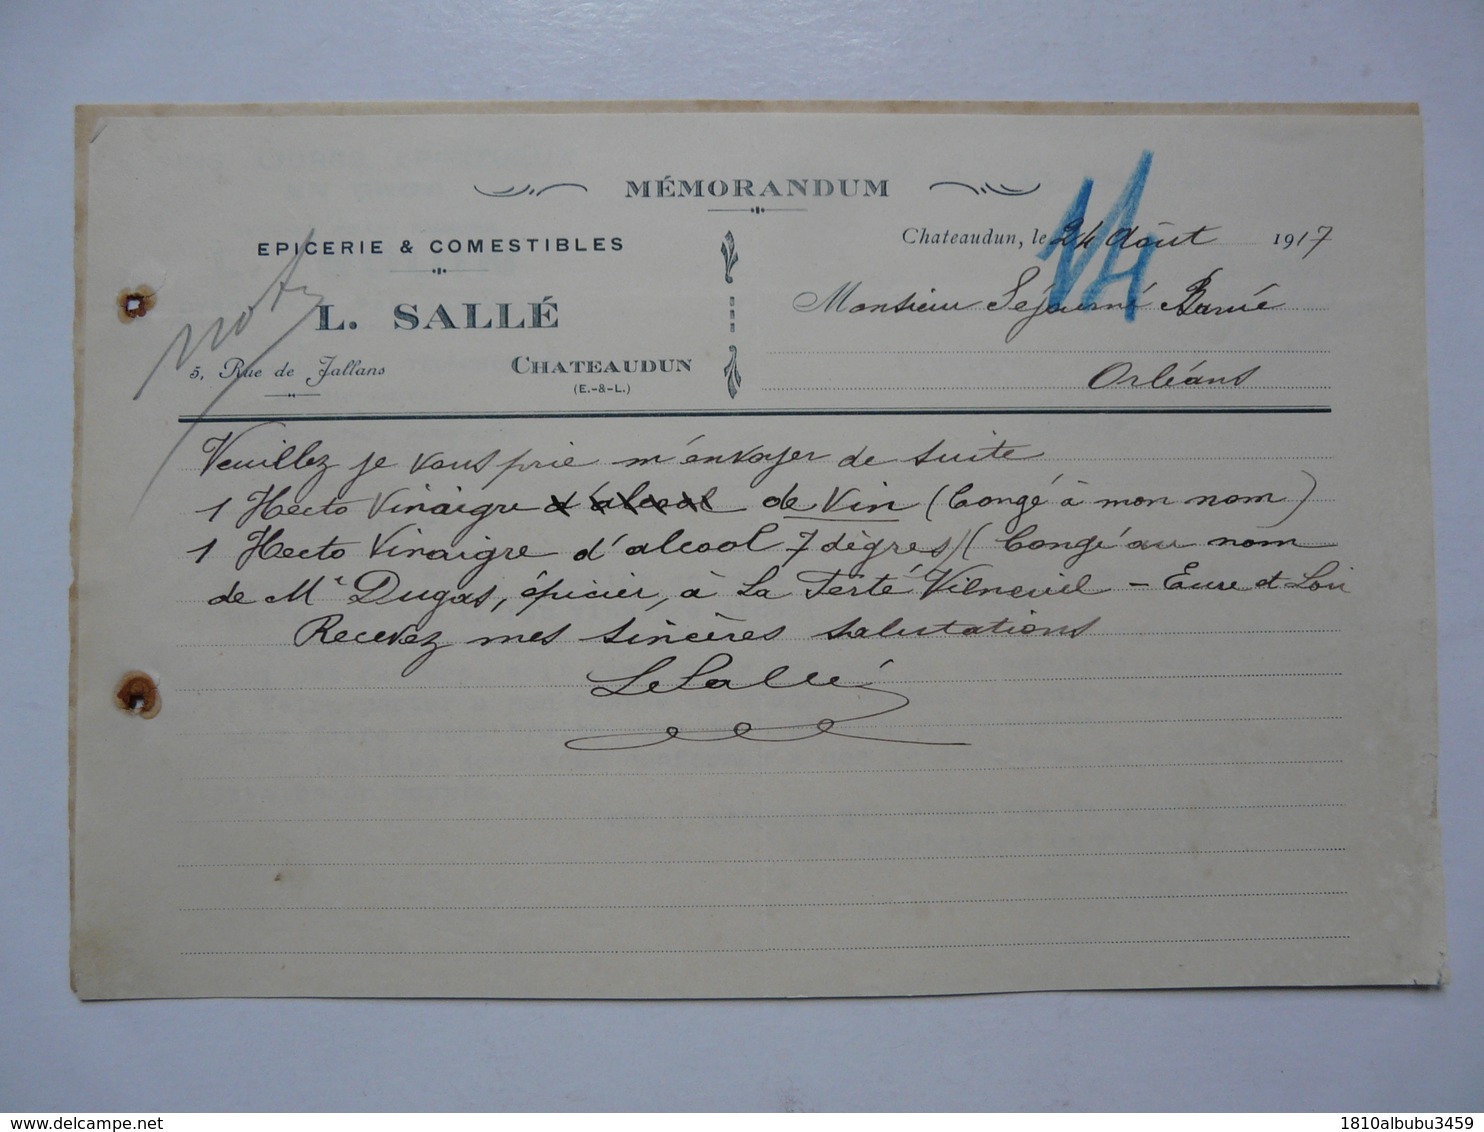 MÉMORANDUM
EPICERIE & COMESTIBLES
L. SALLÉ
5, Rue de Jallans CHATEAUDUN
(E.-&-L.)
Chateaudun, le 24 Août 1917
Monsieur Séjourné
Orléans
Veuillez je vous prie m'envoyer de suite
1 Hecto Vinaigre d'alcool de Vin (Congé à mon nom)
1 Hecto Vinaigre d'alcool 7 dègres (Congé au nom
de Mr Dugas, épicier, à La Ferté Vilneuil - Eure et Loir
Recevez mes sincères salutations
LeSallé
1810albubu3459